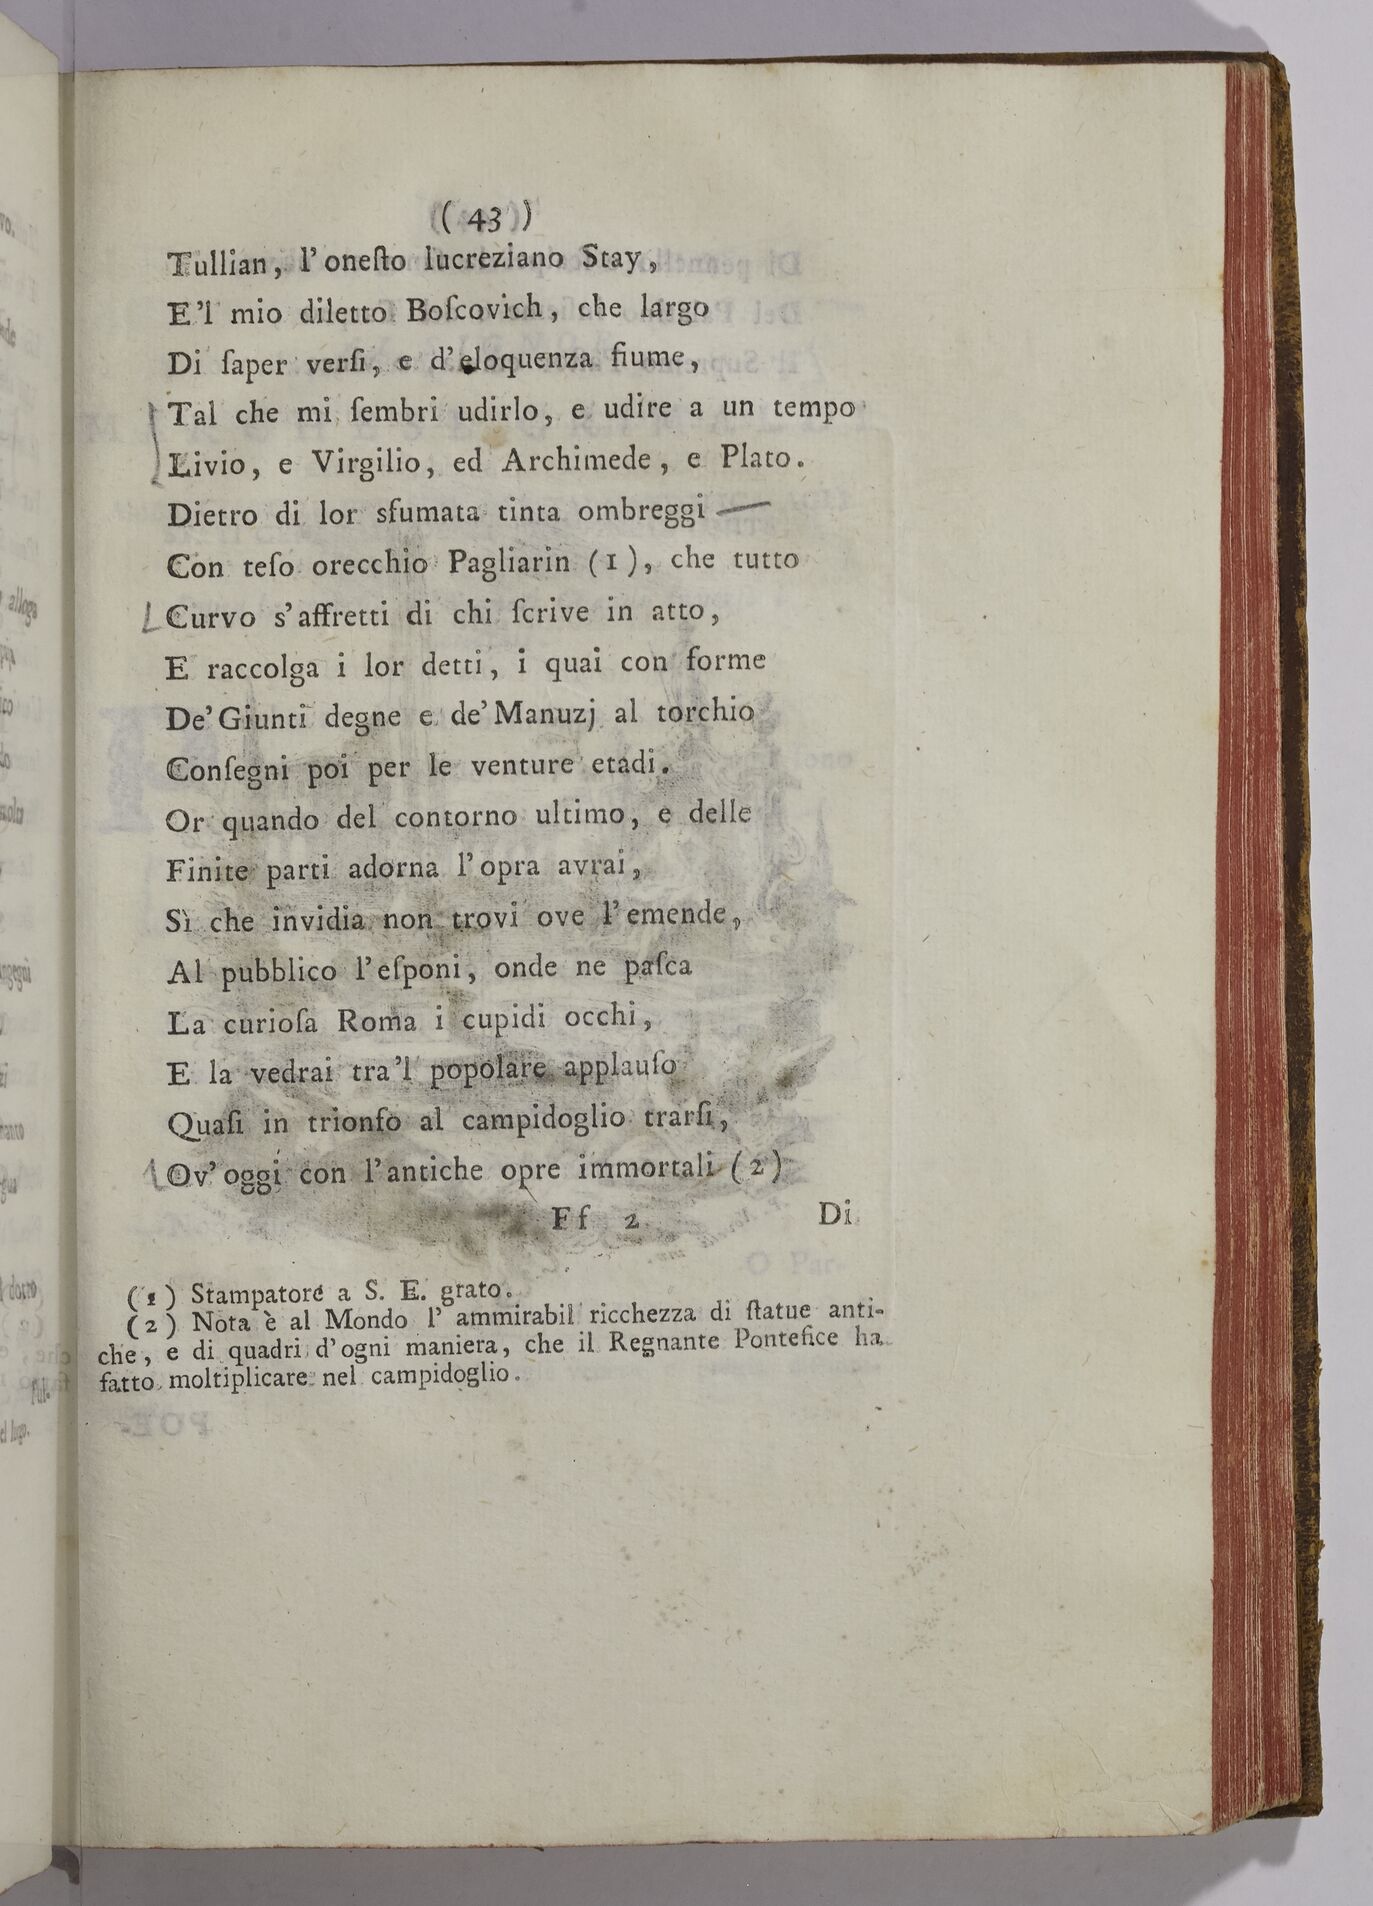 ( 43 )
Tullian, l'oneſto lucreziano Stay,
E'l mio diletto Boſcovich, che largo
Di ſaper verſi, e d'eloquenza fiume,
Tal che mi ſembri udirlo, e udire a un tempo
Livio, e Virgilio, ed Archimede, e Plato.
Dietro di lor sfumata tinta ombreggi
Con teſo orecchio Pagliarin (1), che tutto
Curvo s'affretti di chi ſcrive in atto,
E raccolga i lor detti, i quai con forme
De' Giunti degne e de' Manuzj al torchio
Conſegni poi per le venture etadi.
Or quando del contorno ultimo, e delle
Finite parti adorna l'opra avrai,
Sì che invidia non trovi ove l'emende,
Al pubblico l'eſponi, onde ne paſca
La curioſa Roma i cupidi occhi,
E la vedrai tra'l popolare applauſo
Quaſi in trionfo al campidoglio trarſi,
Ov' oggi con l'antiche opre immortali (2)
Ff 2 Di
(1) Stampatore a S. E. grato.
(2) Nota è al Mondo l' ammirabil ricchezza di ſtatue anti-
che, e di quadri d'ogni maniera, che il Regnante Pontefice ha
fatto moltiplicare nel campidoglio.